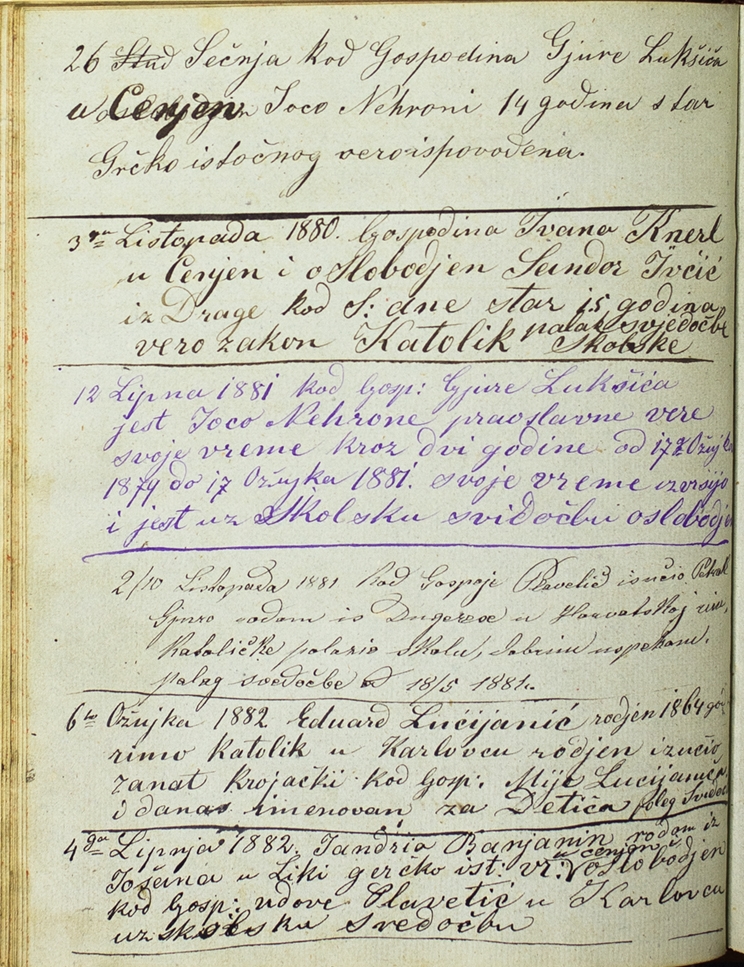 26 Stud Sečnja kod Gospodina Gjure Lukšića
u Cenjen Joco Nehroni 14 godina star
Grčko istočnog veroispovođena.
3ga Listopada 1880. Gospodina Ivana Knerl
u Cenjen i oslobodjen Šandor Ivčić
iz Drage kod S: dne star 15 godina
vero zakon Katolik palag svjedočbe
Školske
12 Lipna 1881 kod Gosp: Gjure Lukšića
jest Joco Nehrone praoslavne vere
svoje vreme kroz dvi godine od 17 Ožujka
1879 do 17 Ožujka 1881. svoje vreme izversijo
i jest uz školsku svidočbu oslobodjen
2/10 Listopada 1881 kod Gospoje Plavetić isučio
Gjuro rodom is Dugerese u Horvatskoj rim,
Katoličke polazio školu, dobrim uspehom.
palag svedočbe od 18/5 1881.
6to Ožujka 1882 Eduard Lucijanić rodjen 1864 god
rimo katolik u Karlovcu rodjen izučio
zanat krojački kod Gosp: Mije Lucijanića
i danas imenovan za Detića poleg Svidoč
4ga Lipnja 1882. Jandria Banjanin rodom iz
Tošana u Liki gerčko ist: vr: u cenjen i oslobodjen
kod Gosp: udove Plavetić u Karlovcu
uz školsku svedočbu